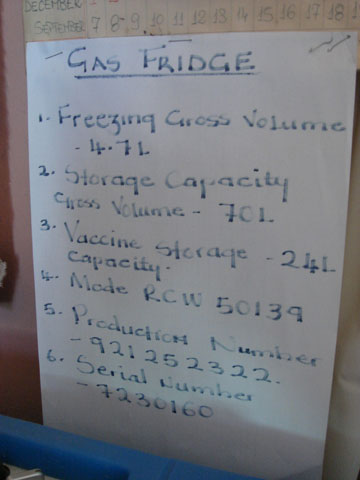 DECEMBER
SEPTEMBER 7 8 9 10 11 12 13 14 15 16 17 18
GAS FRIDGE
1. Freezing Gross Volume
- 4.7L
2. Storage Capacity
Gross Volume - 70L
3. Vaccine Storage - 24L
Capacity.
4. Mode RCW 50139
5. Production Number
- 921252322.
6. Serial Number
- 7230160